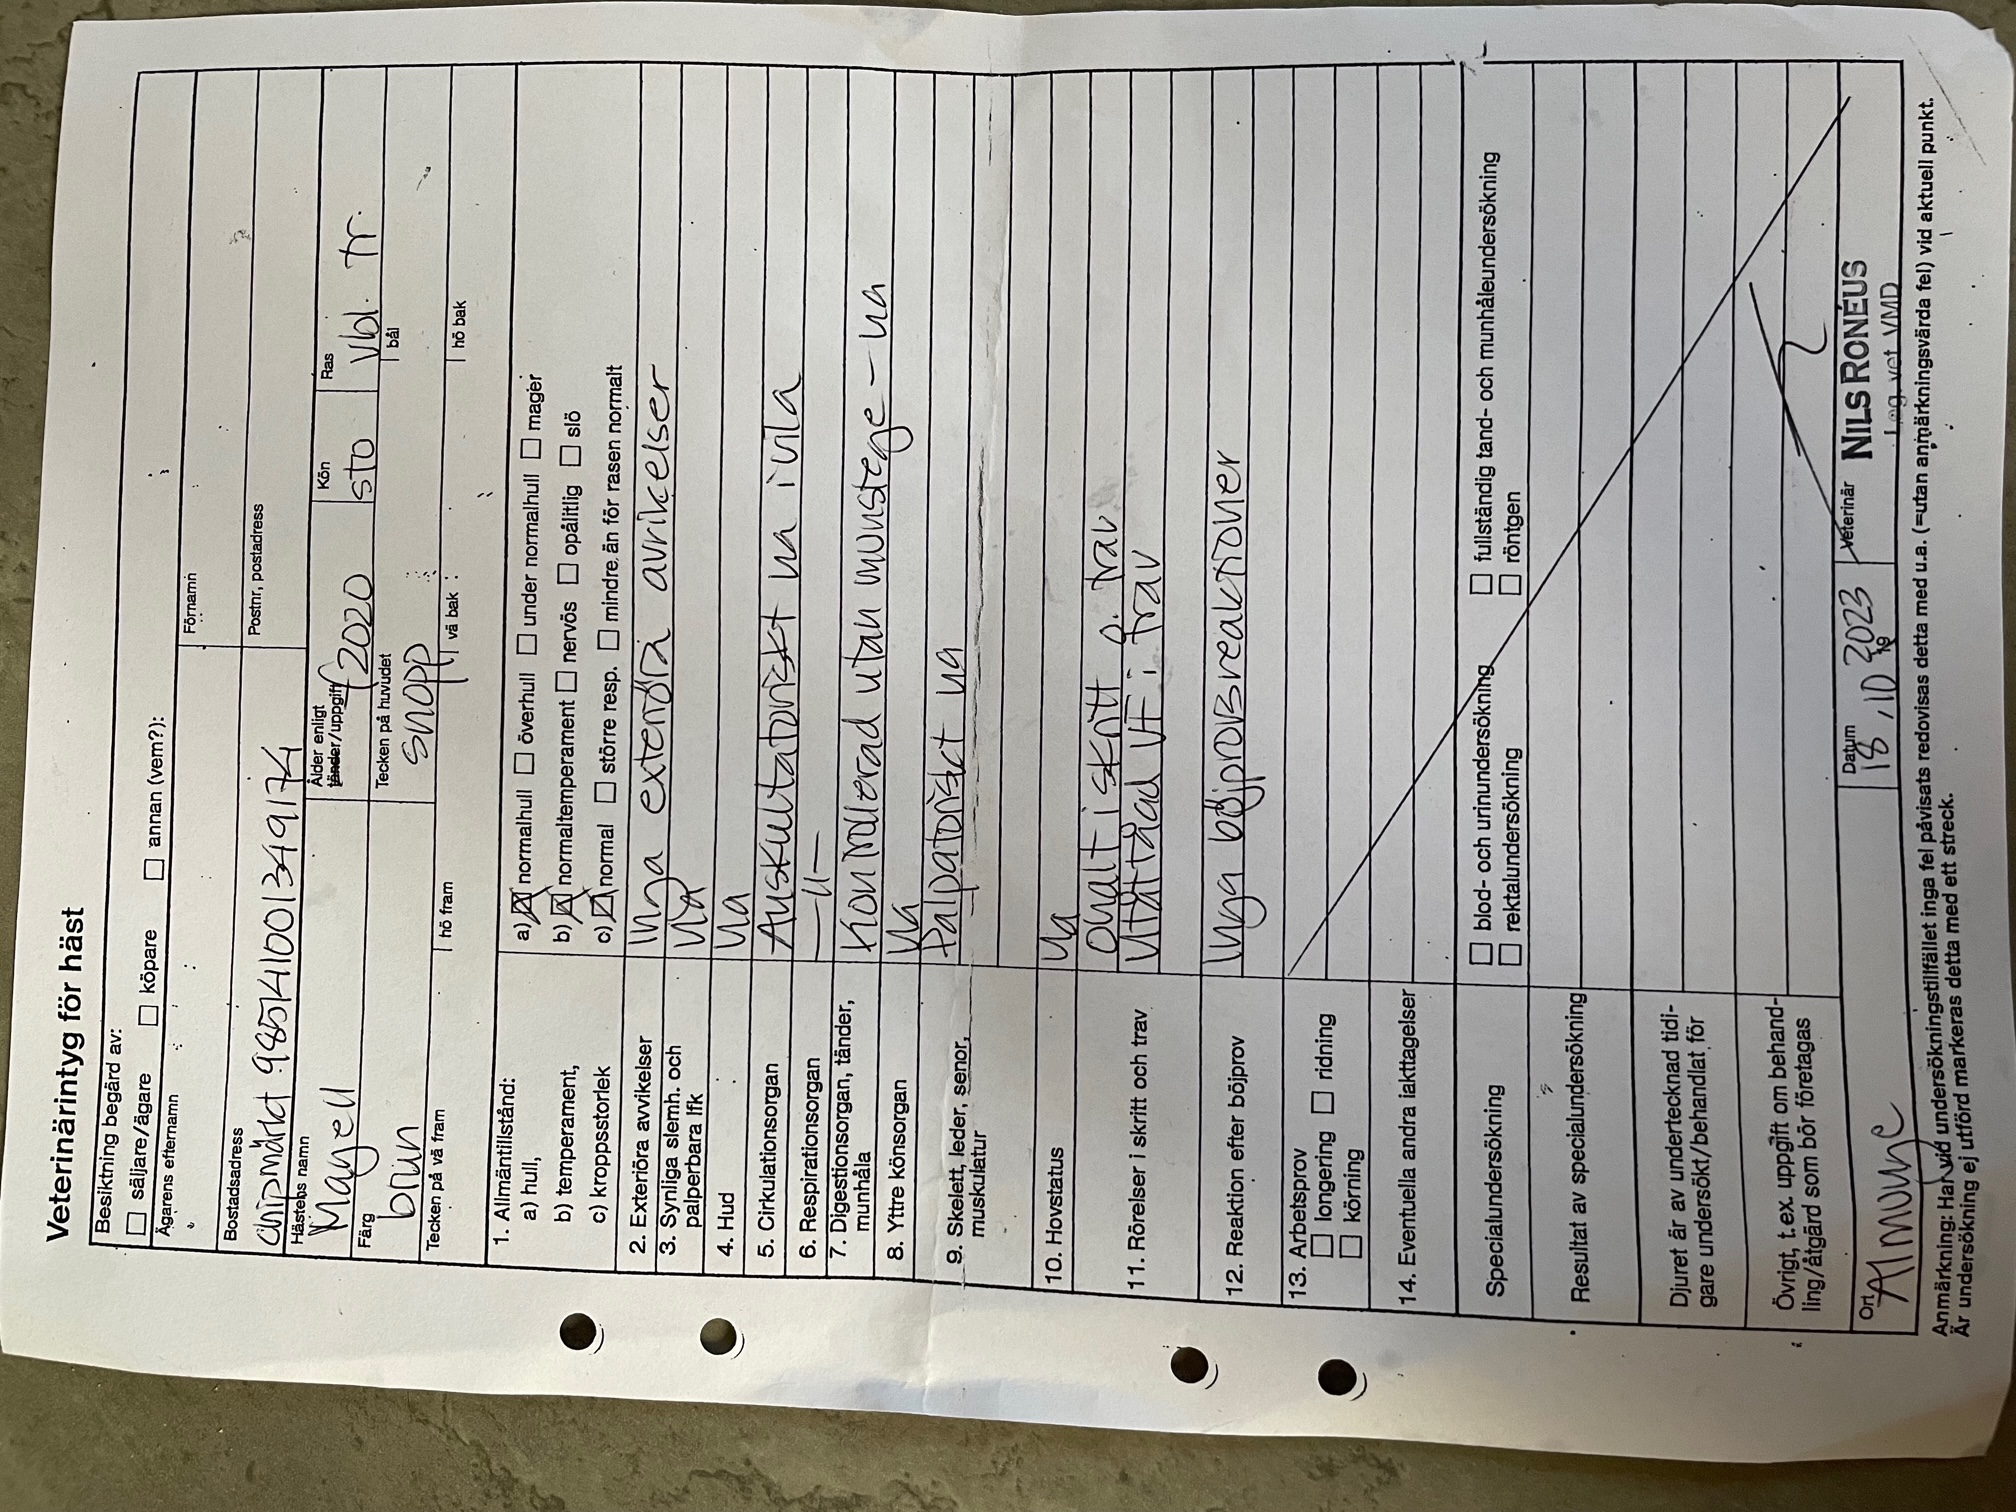 Veterinärintyg för häst
Besiktning begärd av:
säljare/ägare köpare annan (vem?):
Ägarens efternamn Förnamn
Bostadsadress Postnr, postadress
chipmärkt 985141001349174
Hästens namn Ålder enligt tänder/uppgift Kön Ras
Magell f 2020 sto vbl. tr.
Färg Tecken på huvudet bål
brun snopp
Tecken på vä fram hö fram vä bak hö bak
1. Allmäntillstånd:
a) hull, a) normalhull överhull under normalhull mager
b) temperament, b) normaltemperament nervös opålitlig slö
c) kroppsstorlek c) normal större resp. mindre än för rasen normalt
2. Exteriöra avvikelser Inga exteriöra avvikelser
3. Synliga slemh. och palperbara lfk ua
4. Hud ua
5. Cirkulationsorgan Auskultatoriskt ua i vila
6. Respirationsorgan —"—
7. Digestionsorgan, tänder, munhåla Kontrollerad utan munstege - ua
8. Yttre könsorgan ua
9. Skelett, leder, senor, muskulatur Palpatoriskt ua
10. Hovstatus ua
11. Rörelser i skritt och trav Ohalt i skritt o. trav
Utåtåad VF i trav
12. Reaktion efter böjprov Inga böjprovsreaktioner
13. Arbetsprov
longering ridning
körning
14. Eventuella andra iakttagelser
Specialundersökning blod- och urinundersökning fullständig tand- och munhåleundersökning
rektalundersökning röntgen
Resultat av specialundersökning
Djuret är av undertecknad tidi-
gare undersökt/behandlat för
Övrigt, t.ex. uppgift om behand-
ling/åtgärd som bör företagas
Ort Datum Veterinär
Almunge 18.10 2023 19 NILS RONÉUS
Leg vet VMD
Anmärkning: Har vid undersökningstillfället inga fel påvisats redovisas detta med u.a. (=utan anmärkningsvärda fel) vid aktuell punkt.
Är undersökning ej utförd markeras detta med ett streck.